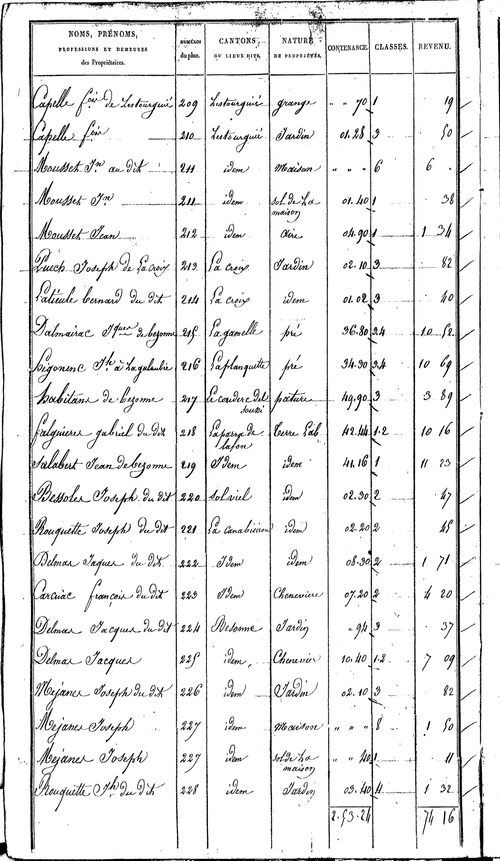 NOMS, PRÉNOMS, PROFESSIONS ET DEMEURES des Propriétaires. | NUMÉROS du plan. | CANTONS OU LIEUX DITS. | NATURE DE PROPRIÉTÉS. | CONTENANCE. | CLASSES. | REVENU.
Capelle fca de Lestourguié 209 Lestourguié grange " " 70 1 19
Capelle fca 210 Lestourguié Jardin 01.28 3 50
Mousset Jn au dit 211 idem Maison " " " 6 6 .
Mousset Jn 211 idem sol de la maison 01.40 1 38
Mousset Jean 212 idem aire 04.90 1 1 34
Puech Joseph de La croix 213 La croix Jardin 02.10 3 82
Latieule bernard du dit 214 La croix idem 01.02 3 40
Dalmairac Jques de bezonne 215 La gamelle pré 36.80 2.4 10 52
Higonenc Jh à 216 Laplanquette pré 34.30 3.4 10 69
habitans de bezonne 217 Le couderc del pature 49.90 3 3 89
falguieres gabriel du dit 218 Laparra de lafon Terre Lab 42.44 1.2 10 16
Salabert Jean de bezonne 219 Idem idem 41.16 1 11 23
Bessoles Joseph du dit 220 solviel idem 02.30 2 47
Rouquette Joseph du dit 221 La canabieiron idem 02.20 2 45
Delmas Jaques du dit 222 Idem idem 08.30 2 1 71
Carciac françois du dit 223 Idem Cheneviere 07.20 2 4 20
Delmas Jacques du dit 224 Besonne Jardin " 94 3 37
Delmas Jacques 225 idem Chenevier 10.40 1.2 7 09
Mejanes Joseph du dit 226 idem Jardin 02.10 3 82
Mejanes Joseph 227 idem Maison " " " 8 1 50
Mejanes Joseph 227 idem sol de la maison " " 40 1 11
Rouquette Jh du dit 228 idem Jardin 03.40 4 1 32
2.53.24 74 16